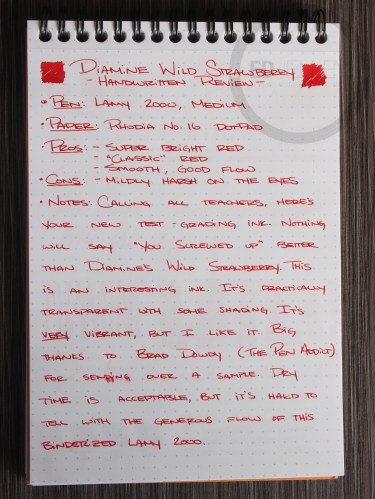 Diamine Wild Strawberry
- Handwritten Review -
• Pen: Lamy 2000, Medium
• Paper: Rhodia No. 16 DotPad
• Pros: - Super bright red
- "Classic" red
- Smooth, good flow
• Cons: - Mildly harsh on the eyes
• Notes: Calling all teachers, here's
your new test-grading ink. Nothing
will say "You screwed up" better
than Diamine's Wild Strawberry. This
is an interesting ink. It's practically
transparent with some shading. It's
very vibrant, but I like it. Big
thanks to Brad Dowdy (The Pen Addict)
for sending over a sample. Dry
time is acceptable, but it's hard to
tell with the generous flow of this
Binderized Lamy 2000.